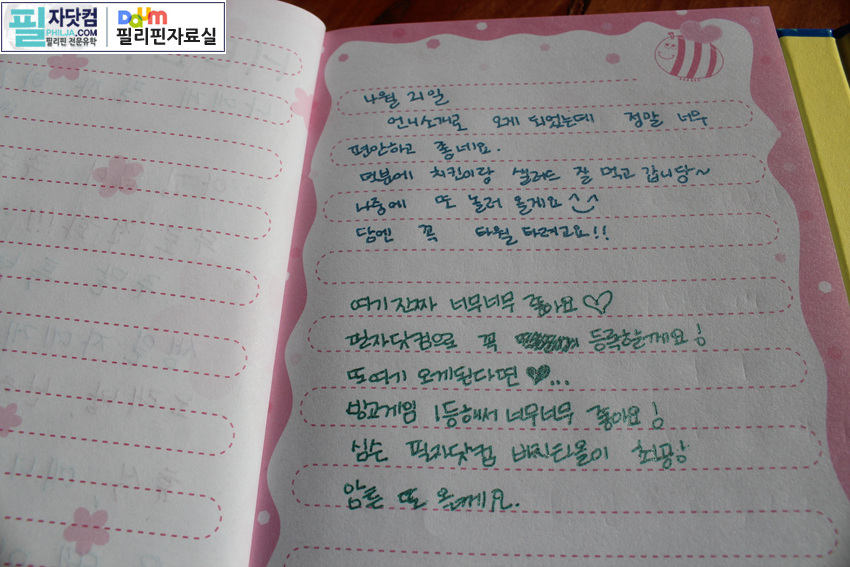 필 자닷컴
PHILJA.COM
필리핀 전문유학
Daum
필리핀자료실
4월 21일
언니소개로 오게 되었는데 정말 너무
편안하고 좋네요.
덕분에 치킨이랑 샐러드 잘 먹고 갑니당~
나중에 또 놀러 올게요
담엔 꼭 타월 타려고요!!
여기 진짜 너무너무 좋아요♡
필자닷컴으로 꼭 등록할께요!
또여기 오게된다면 ♥...
빙고게임 1등해서 너무너무 좋아요!
심슨 필자닷컴 비치타올이 최공
암튼 또 올께요.